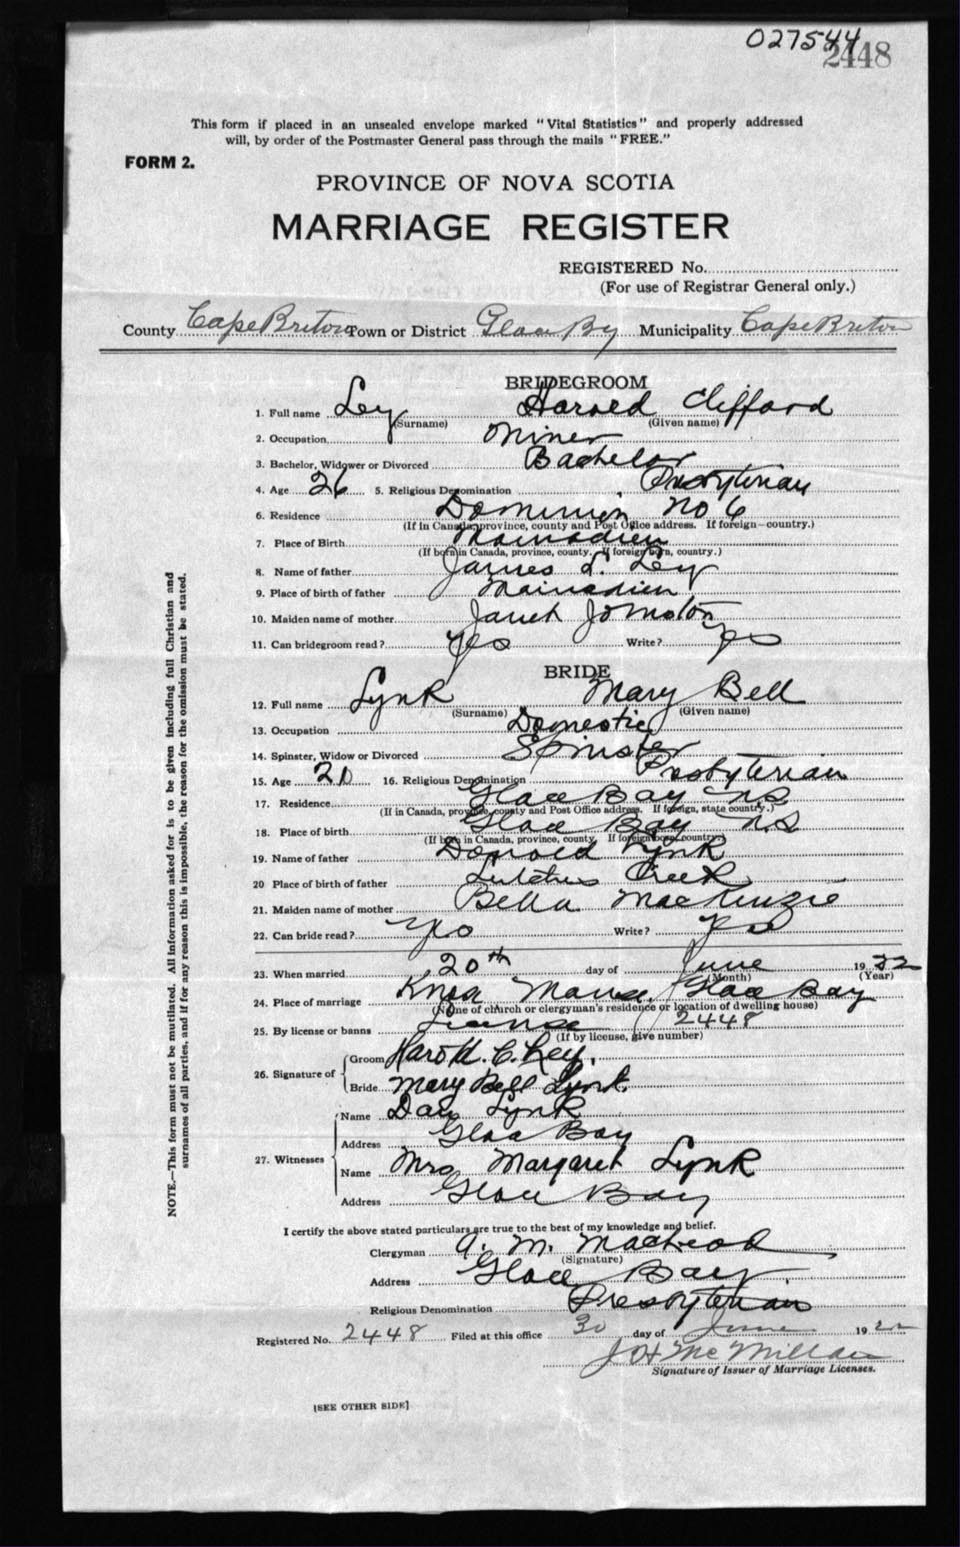 027544
2448
This form if placed in an unsealed envelope marked "Vital Statistics" and properly addressed
will, by order of the Postmaster General pass through the mails "FREE."
FORM 2.
PROVINCE OF NOVA SCOTIA
MARRIAGE REGISTER
REGISTERED No.
(For use of Registrar General only.)
County Cape Breton Town or District Glace By Municipality Cape Breton
BRIDEGROOM
1. Full name Ley Harold Clifford
(Surname) (Given name)
2. Occupation Miner
3. Bachelor, Widower or Divorced Bachelor
4. Age 26 5. Religious Denomination Presbyterian
6. Residence Dominion No 6
(If in Canada, province, county and Post Office address. If foreign—country.)
7. Place of Birth Mainadieu
(If born in Canada, province, county. If foreign born, country.)
8. Name of father James L. Ley
9. Place of birth of father Mainadieu
10. Maiden name of mother Janet Johnston
11. Can bridegroom read? Yes Write? Yes
BRIDE
12. Full name Lynk Mary Bell
(Surname) (Given name)
13. Occupation Domestic
14. Spinster, Widow or Divorced Spinster
15. Age 20 16. Religious Denomination Presbyterian
17. Residence Glace Bay N.S
(If in Canada, province, county and Post Office address. If foreign, state country.)
18. Place of birth Glace Bay N.S
(If born in Canada, province, county. If foreign born, country.)
19. Name of father Donald Lynk
20 Place of birth of father Creek
21. Maiden name of mother Bella MacKenzie
22. Can bride read? Yes Write? Yes
23. When married 20th day of June 1922
(Month) (Year)
24. Place of marriage Knox Manse, Glace Bay
(Name of church or clergyman's residence or location of dwelling house)
25. By license or banns License 2448
(If by license, give number)
26. Signature of Groom Harold. C. Ley.
Bride Mary Bell Lynk.
27. Witnesses Name Dan Lynk
Address Glace Bay
Name Mrs Margaret Lynk
Address Glace Bay
I certify the above stated particulars are true to the best of my knowledge and belief.
Clergyman A. M. MacLeod
(Signature)
Address Glace Bay.
Religious Denomination Presbyterian
Registered No. 2448 Filed at this office 30 day of June 1922
J H McMillan
Signature of Issuer of Marriage Licenses.
[SEE OTHER SIDE]
NOTE.—This form must not be mutilated. All information asked for is to be given including full Christian and
surnames of all parties, and if for any reason this is impossible, the reason for the omission must be stated.